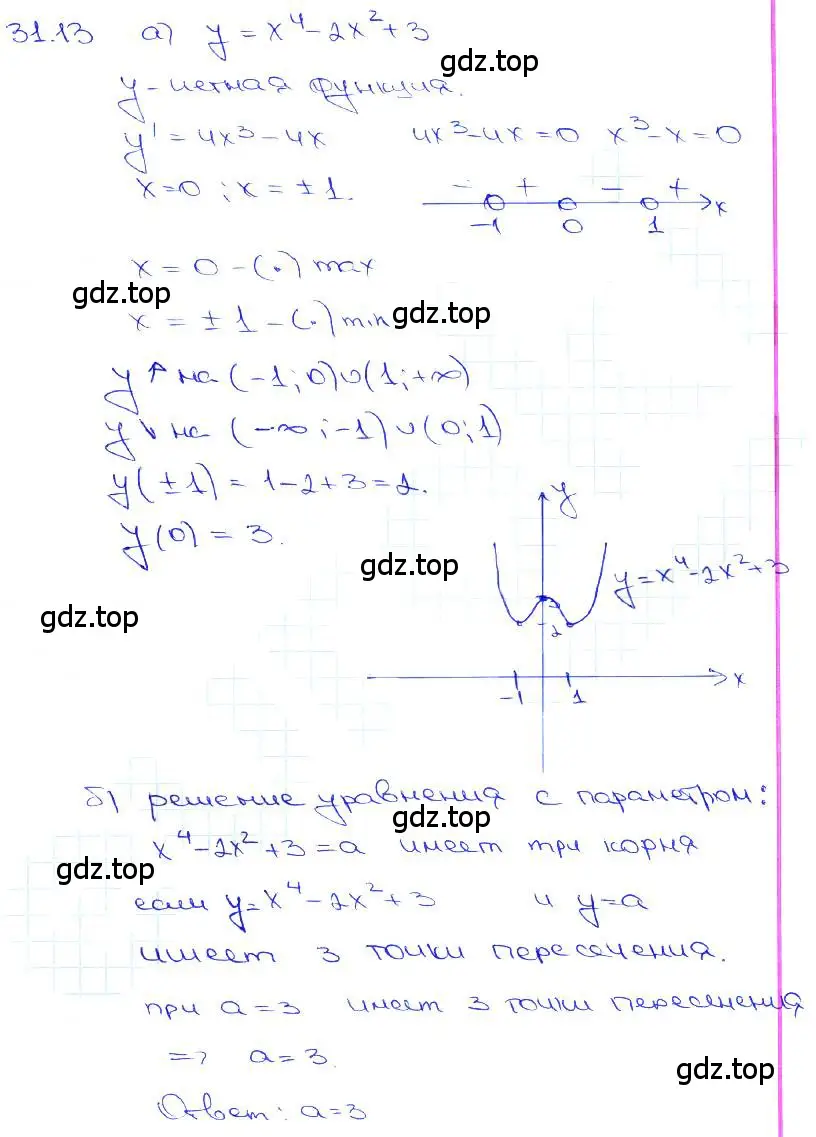 31.13 а) y = x⁴ - 2x² + 3
gdz.top
y - четная функция.
y' = 4x³ - 4x 4x³ - 4x = 0 x³ - x = 0
x = 0 ; x = ± 1.
- + - + x
-1 0 1
x = 0 - (·) max
gdz.top
x = ± 1 - (·) min
gdz.top
y ↑ на (-1; 0) ∪ (1; +∞)
y ↓ на (-∞; -1) ∪ (0; 1)
y(± 1) = 1 - 2 + 3 = 2.
y(0) = 3.
y
gdz.top
y = x⁴ - 2x² + 3
gdz.top
2
x
-1 1
б) решение уравнения с параметром:
gdz.top
x⁴ - 2x² + 3 = a имеет три корня
gdz.top
если y = x⁴ - 2x² + 3 и y = a
имеет 3 точки пересечения.
при a = 3 имеет 3 точки пересечения
=> a = 3.
gdz.top
Ответ: a = 3